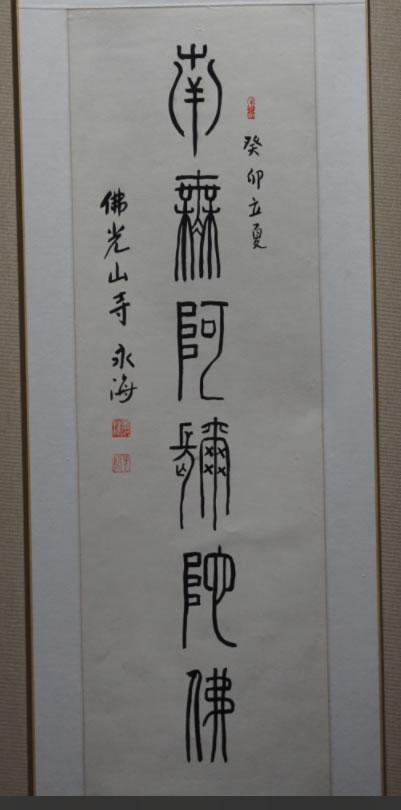 癸卯立夏
南無阿彌陀佛
佛光山寺 永海